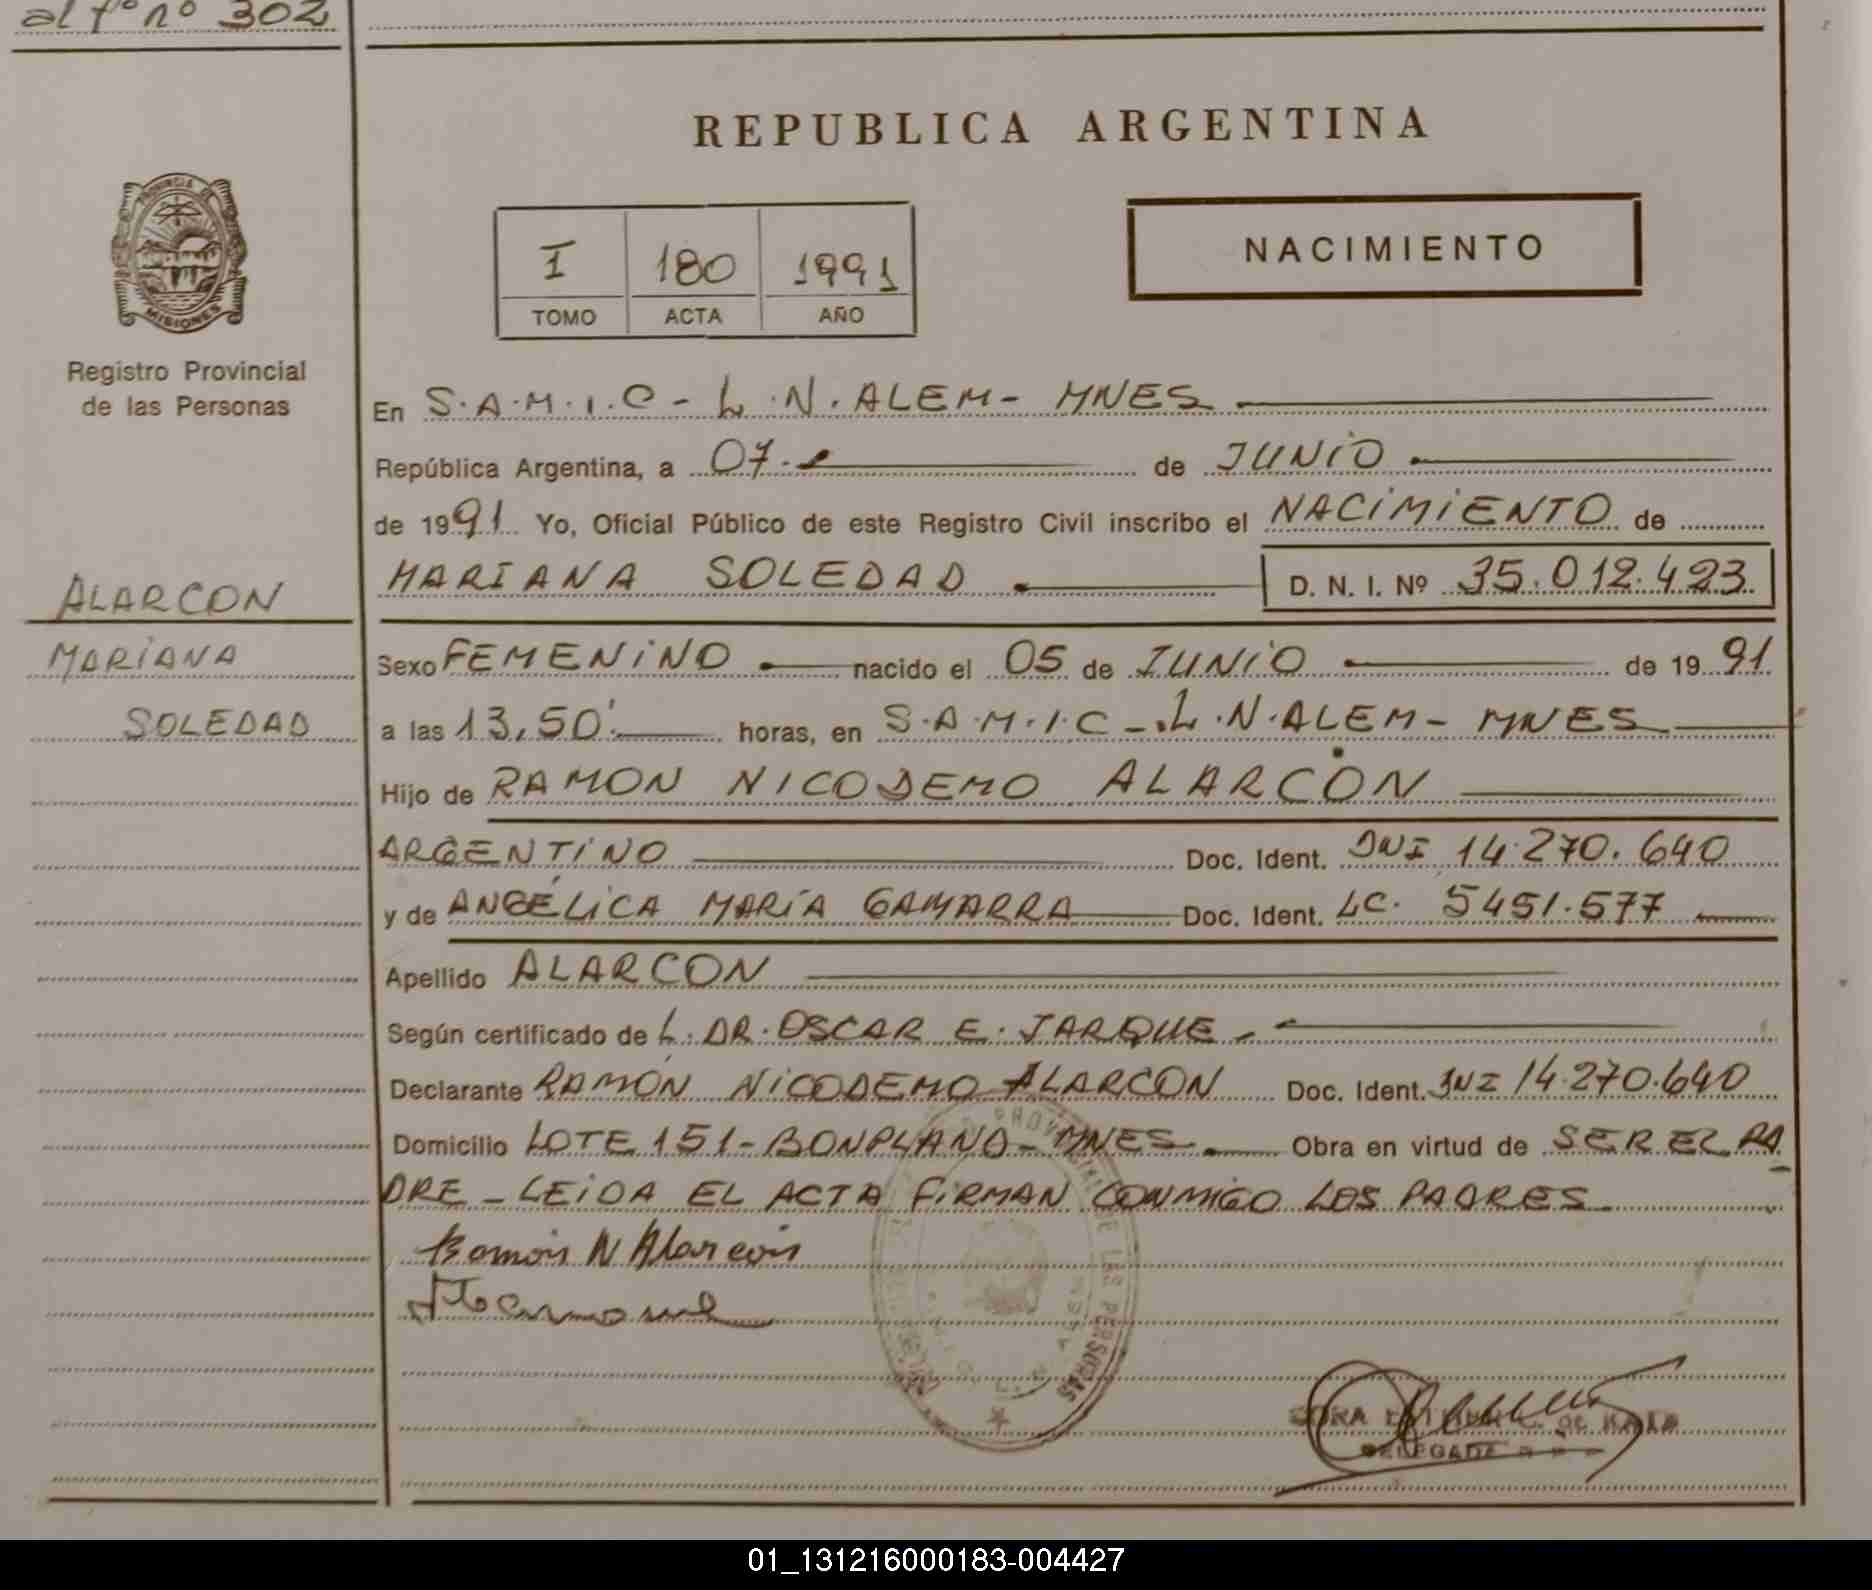 al fº nº 302
REPUBLICA ARGENTINA
PROVINCIA DE
MISIONES
Registro Provincial
de las Personas
I 180 1991
TOMO ACTA AÑO
NACIMIENTO
En S.A.M.I.C - L.N. ALEM - MNES
República Argentina, a 07.- de JUNIO
de 1991 Yo, Oficial Público de este Registro Civil inscribo el NACIMIENTO de
MARIANA SOLEDAD D. N. I. Nº 35.012.423
ALARCON
MARIANA
SOLEDAD
Sexo FEMENINO nacido el 05 de JUNIO de 1991
a las 13,50' horas, en S.A.M.I.C - L.N. ALEM - MNES
Hijo de RAMON NICODEMO ALARCÓN
ARGENTINO Doc. Ident. DNI 14.270.640
y de ANGÉLICA MARÍA GAMARRA Doc. Ident. LC. 5451.577
Apellido ALARCON
Según certificado de L. DR. OSCAR E. JARQUE -
Declarante RAMÓN NICODEMO ALARCON Doc. Ident. DNI 14.270.640
Domicilio LOTE 151 - BONPLAND - MNES Obra en virtud de SER EL PA
DRE - LEIDA EL ACTA FIRMAN CONMIGO LOS PADRES
Ramón N Alarcón
DE LAS PERSONAS
DELEGADA
01_131216000183-004427